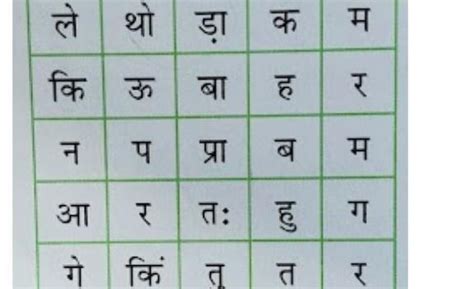 ले थो ड़ा क म
कि ऊ बा ह र
न प प्रा ब म
आ र तः हु ग
गे किं तु त र